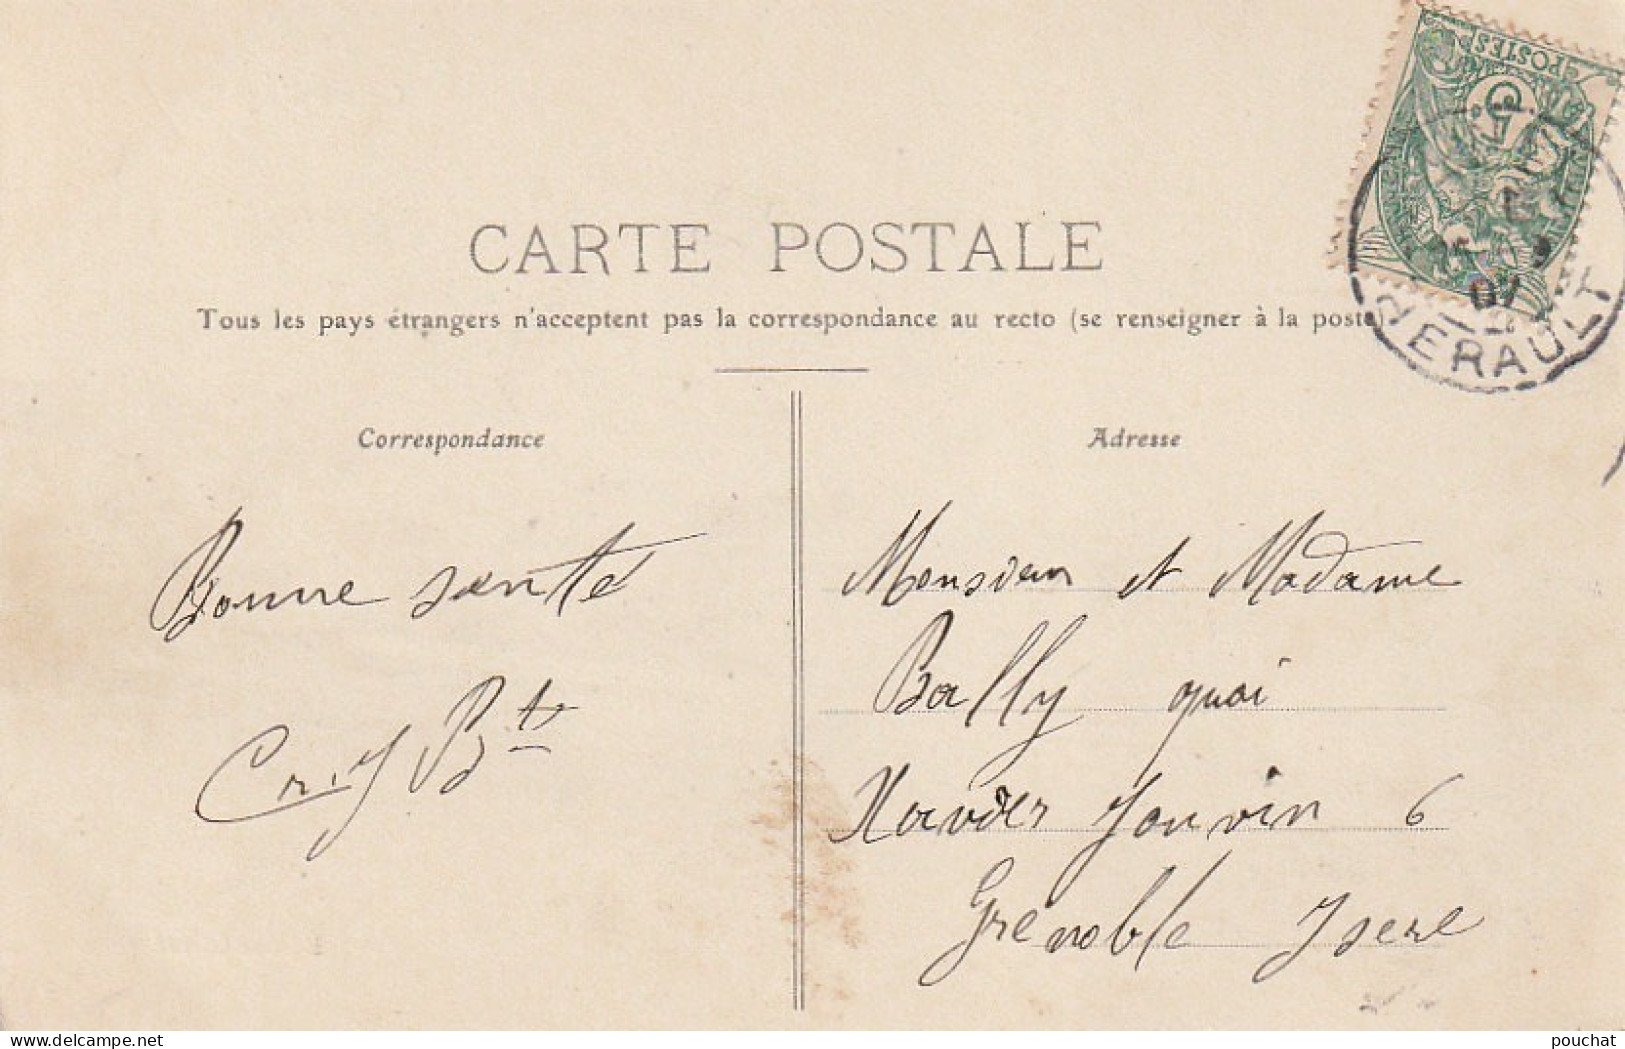 POSTES
5
CARTE POSTALE
Tous les pays étrangers n'acceptent pas la correspondance au recto (se renseigner à la poste)
07
HERAULT
Correspondance
Adresse
Bonne santé
Bte
Monsieur et Madame
Bally quai
Xavier Jouvin 6
Grenoble Isere
delcampe.net
pouchat